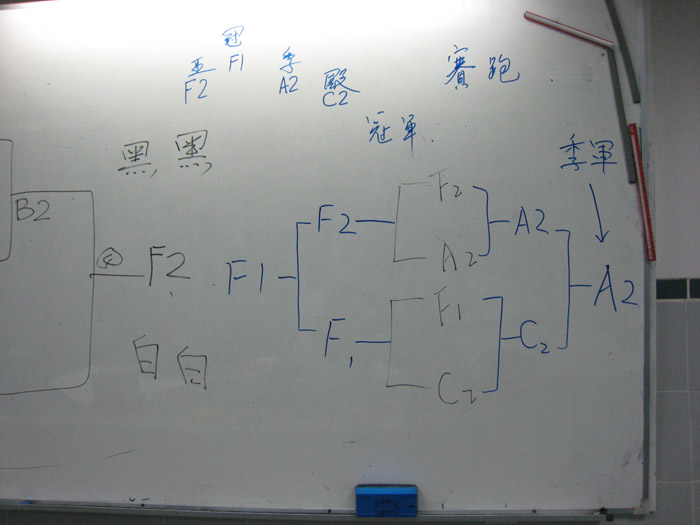 冠
F1
亚
F2
季
A2
殿
C2
賽跑
冠軍
季軍
黑,黑,
B2
④
F2
F1
F2
F1
F2
A2
F1
C2
A2
C2
A2
白白